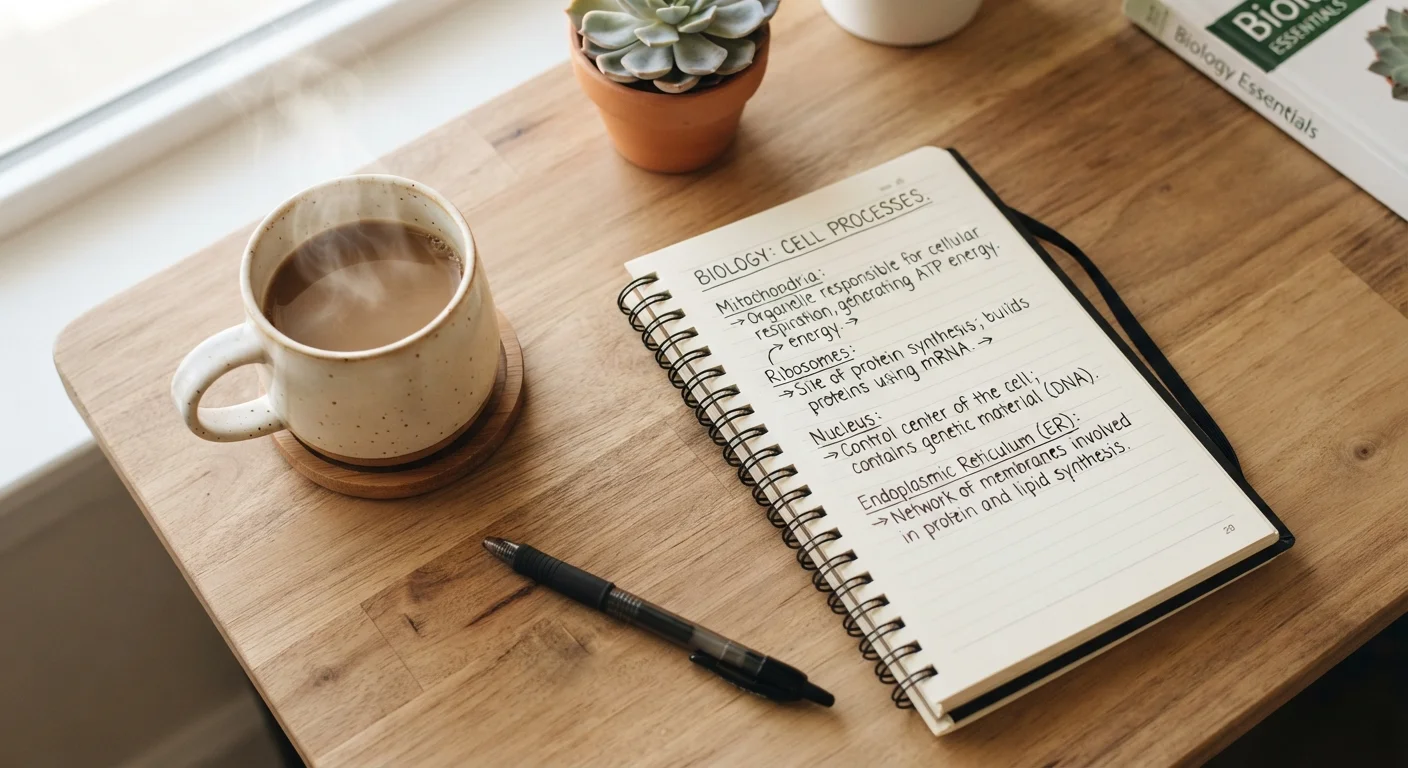 BIOLOGY: CELL PROCESSES.
Mitochondria:
→ Organelle responsible for cellular
respiration, generating ATP energy.
→ energy. →
Ribosomes:
→ Site of protein synthesis; builds
proteins using mRNA. →
Nucleus:
→ Control center of the cell;
contains genetic material (DNA).
Endoplasmic Reticulum (ER):
→ Network of membranes involved
in protein and lipid synthesis.
20
ESSENTIALS
Biology Essentials